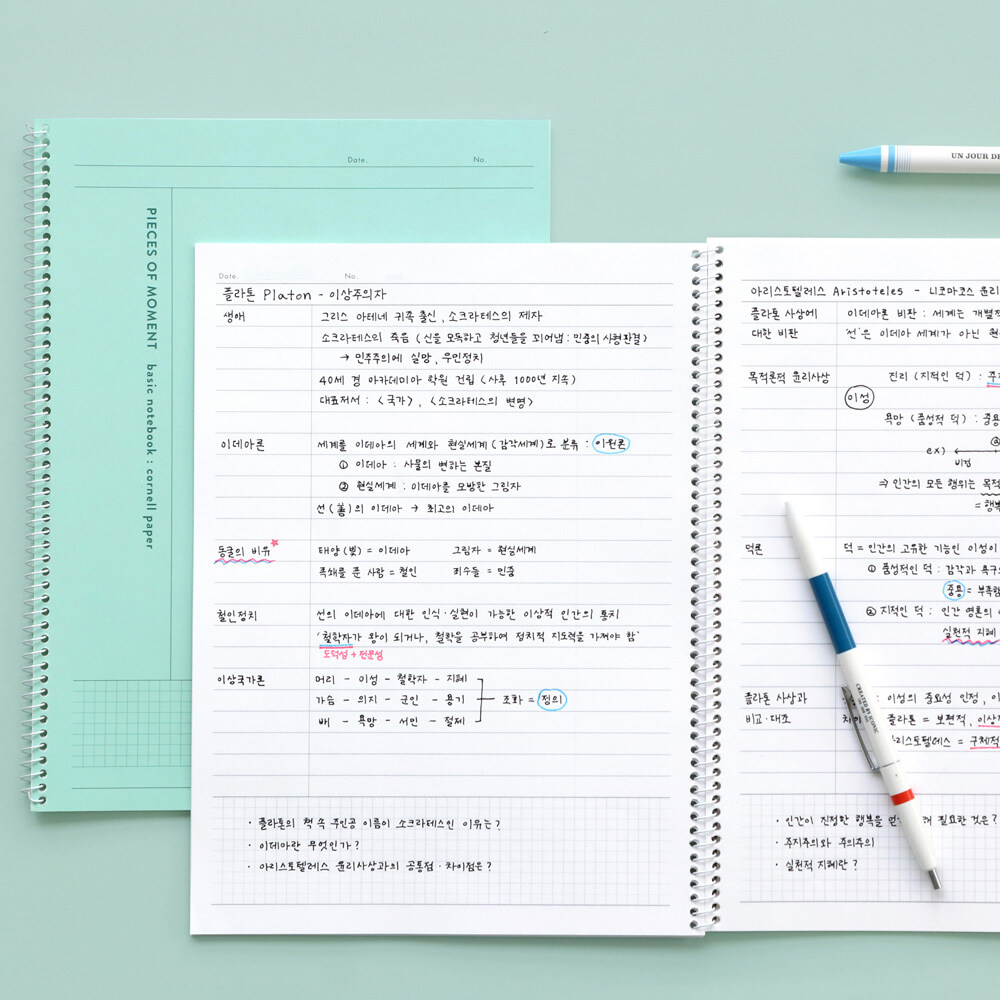 Date. No.
PIECES OF MOMENT basic notebook : cornell paper
UN JOUR DE
Date. No.
플라톤 Platon - 이상주의자
생애 그리스 아테네 귀족 출신, 소크라테스의 제자
소크라테스의 죽음 (신을 모독하고 청년들을 꾀어냄 : 민중의 사형판결)
→ 민주주의에 실망, 우민정치
40세 경 아카데미아 학원 건립 (사후 1000년 지속)
대표저서 : <국가>, <소크라테스의 변명>
이데아론 세계를 이데아의 세계와 현실세계 (감각세계)로 분류 : 이원론
① 이데아 : 사물의 변하는 본질
② 현실세계 : 이데아를 모방한 그림자
선(善)의 이데아 → 최고의 이데아
동굴의 비유 태양(빛) = 이데아 그림자 = 현실세계
족쇄를 푼 사람 = 철인 죄수들 = 민중
철인정치 선의 이데아에 대한 인식·실현이 가능한 이상적 인간의 통치
'철학자가 왕이 되거나, 철학을 공부하여 정치적 지도력을 가져야 함'
도덕성 + 전문성
이상국가론 머리 - 이성 - 철학자 - 지혜
가슴 - 의지 - 군인 - 용기 조화 = 정의
배 - 욕망 - 서민 - 절제
· 플라톤의 책 속 주인공 이름이 소크라테스인 이유는?
· 이데아란 무엇인가?
· 아리스토텔레스 윤리사상과의 공통점·차이점은?
아리스토텔레스 Aristoteles - 니코마코스 윤리
플라톤 사상에 이데아론 비판 : 세계는 개별적
대한 비판 '선'은 이데아 세계가 아닌 현
목적론적 윤리사상 진리 (지적인 덕) :
이성
욕망 (품성적 덕) : 중용
ex)
비겁
⇒ 인간의 모든 행위는 목적
= 행복
덕론 덕 = 인간의 고유한 기능인 이성이
① 품성적인 덕 : 감각과 욕구
중용 = 부족함
② 지적인 덕 : 인간 영혼의
실천적 지혜
플라톤 사상과 : 이성의 중요성 인정,
비교·대조 플라톤 = 보편적, 이상
아리스토텔레스 = 구체적
· 인간이 진정한 행복을 필요한 것은?
· 주지주의와 주의주의
· 실천적 지혜란?
CREATED BY ICONIC